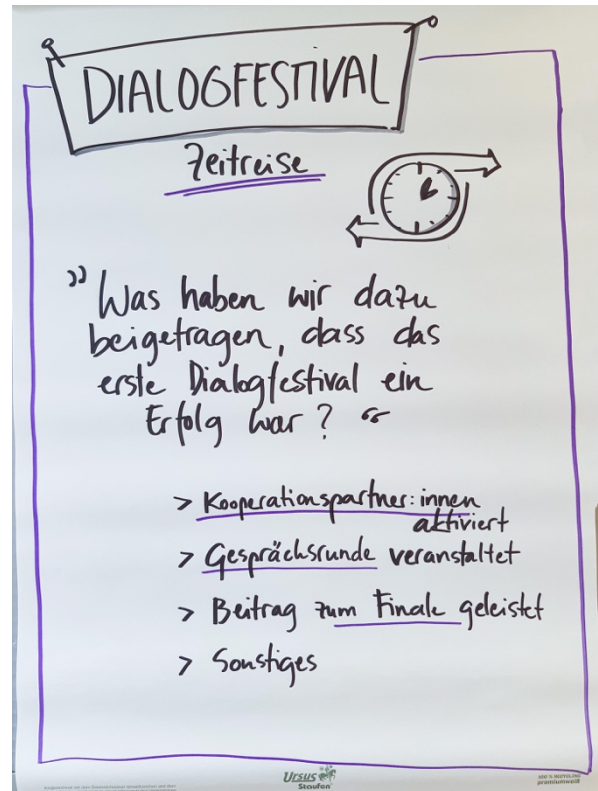 DIALOGFESTIVAL
Zeitreise
"Was haben wir dazu
beigetragen, dass das
erste Dialogfestival ein
Erfolg war? "
> Kooperationspartner:innen
aktiviert
> Gesprächsrunde veranstaltet
> Beitrag zum Finale geleistet
> Sonstiges
Ursus
Staufen
100 % RECYCLING
premiumweiß